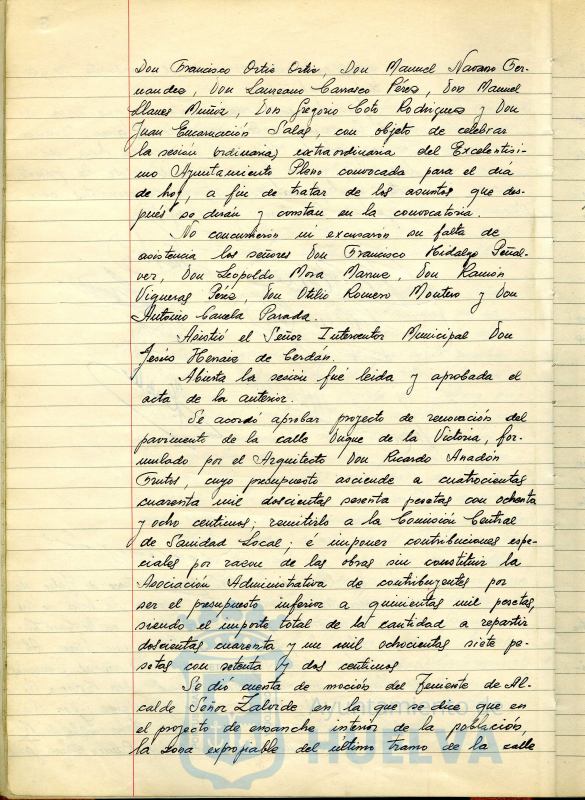 Don Francisco Ortiz Ortiz, Don Manuel Navarro Fer-
nandez, Don Laureano Carrasco Pérez, Don Manuel
Llanes Muñoz, Don Gregorio Coto Rodriguez y Don
Juan Encarnación Salas, con objeto de celebrar
la sesión (ordinaria) extraordinaria del Excelentisi-
mo Ayuntamiento Pleno convocada para el día
de hoy, a fin de tratar de los asuntos que des-
pués se dirán y constan en la convocatoria.
No concurrieron ni excusaron su falta de
asistencia los señores Don Francisco Hidalgo Peñal-
ver, Don Leopoldo Mora Don Ramón
Vigueras Pérez, Don Otilio Romero Montero y Don
Antonio Parada.
Asistió el Señor Interventor Municipal Don
Jesús de Cerdán.
Abierta la sesión fué leida y aprobada el
acta de la anterior.
Se acordó aprobar proyecto de renovación del
pavimento de la calle Duque de la Victoria, for-
mulado por el Arquitecto Don Ricardo Anadón
Frutos, cuyo presupuesto asciende a cuatrocientas
cuarenta mil doscientas sesenta pesetas con ochenta
y ocho centimos; remitirlo a la Comisión Central
de Sanidad Local; é imponer contribuciones espe-
ciales por razon de las obras sin constituir la
Asociación Administrativa de contribuyentes por
ser el presupuesto inferior a quinientas mil pesetas,
siendo el importe total de la cantidad a repartir
doscientas cuarenta y un mil ochocientas siete pe-
setas con setenta y dos centimos
Se dió cuenta de moción del Teniente de Al-
calde Señor Zalvide en la que se dice que en
el proyecto de ensanche interior de la población,
la zona expropiable del último tramo de la calle
Ayuntamiento
HUELVA